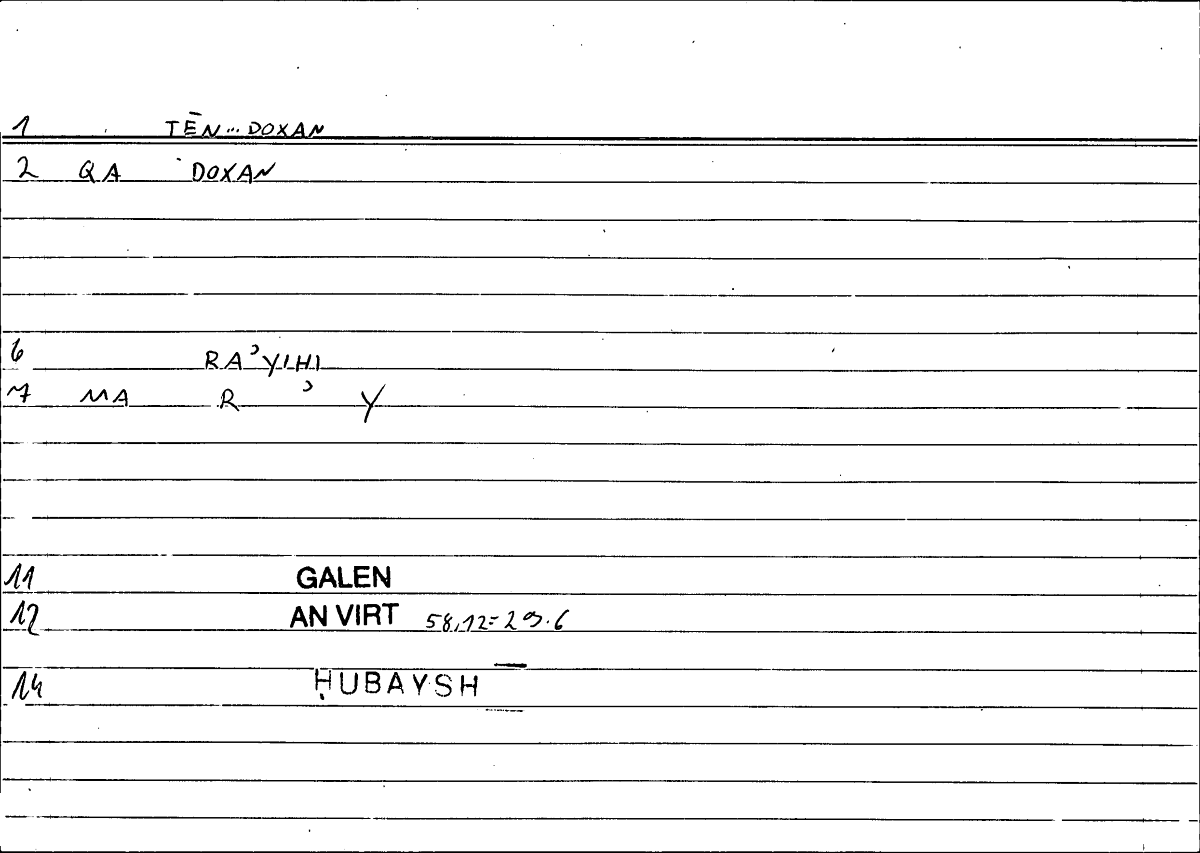 1 TĒN... DOXAN
2 QA DOXAN
6 RAʾYIHI
7 MA R ʾ Y
11 GALEN
12 AN VIRT 58,12=29.6
14 ḤUBAYSH